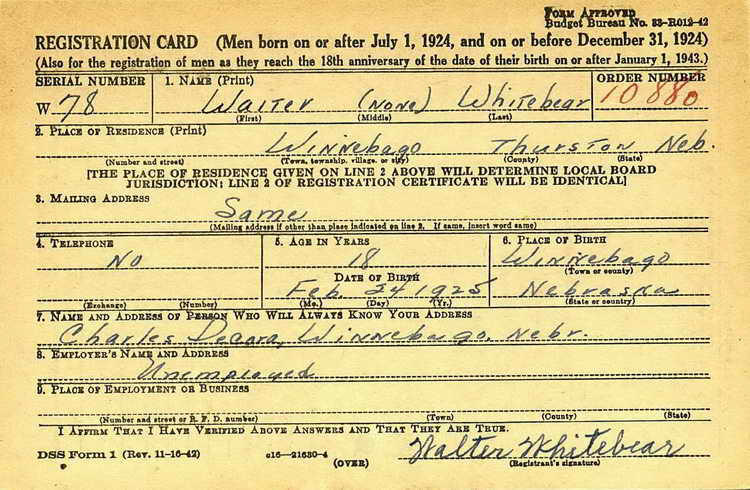 FORM APPROVED
Budget Bureau No. 33-R012-42
REGISTRATION CARD (Men born on or after July 1, 1924, and on or before December 31, 1924)
(Also for the registration of men as they reach the 18th anniversary of the date of their birth on or after January 1, 1943.)
SERIAL NUMBER 1. NAME (Print) ORDER NUMBER
W 78 Walter (None) Whitebear 10880
(First) (Middle) (Last)
2. PLACE OF RESIDENCE (Print)
Winnebago Thurston Neb.
(Number and street) (Town, township, village, or city) (County) (State)
[THE PLACE OF RESIDENCE GIVEN ON LINE 2 ABOVE WILL DETERMINE LOCAL BOARD
JURISDICTION; LINE 2 OF REGISTRATION CERTIFICATE WILL BE IDENTICAL]
3. MAILING ADDRESS
Same
(Mailing address if other than place indicated on line 2. If same, insert word same)
4. TELEPHONE 5. AGE IN YEARS 6. PLACE OF BIRTH
No 18 Winnebago
(Town or county)
DATE OF BIRTH
Feb. 24 1925 Nebraska
(Exchange) (Number) (Mo.) (Day) (Yr.) (State or country)
7. NAME AND ADDRESS OF PERSON WHO WILL ALWAYS KNOW YOUR ADDRESS
Charles Decora, Winnebago, Nebr.
8. EMPLOYER'S NAME AND ADDRESS
Unemployed
9. PLACE OF EMPLOYMENT OR BUSINESS
(Number and street or R. F. D. number) (Town) (County) (State)
I AFFIRM THAT I HAVE VERIFIED ABOVE ANSWERS AND THAT THEY ARE TRUE.
Walter Whitebear
DSS Form 1 (Rev. 11-16-42) c16—21630-4 (Registrant's signature)
(OVER)